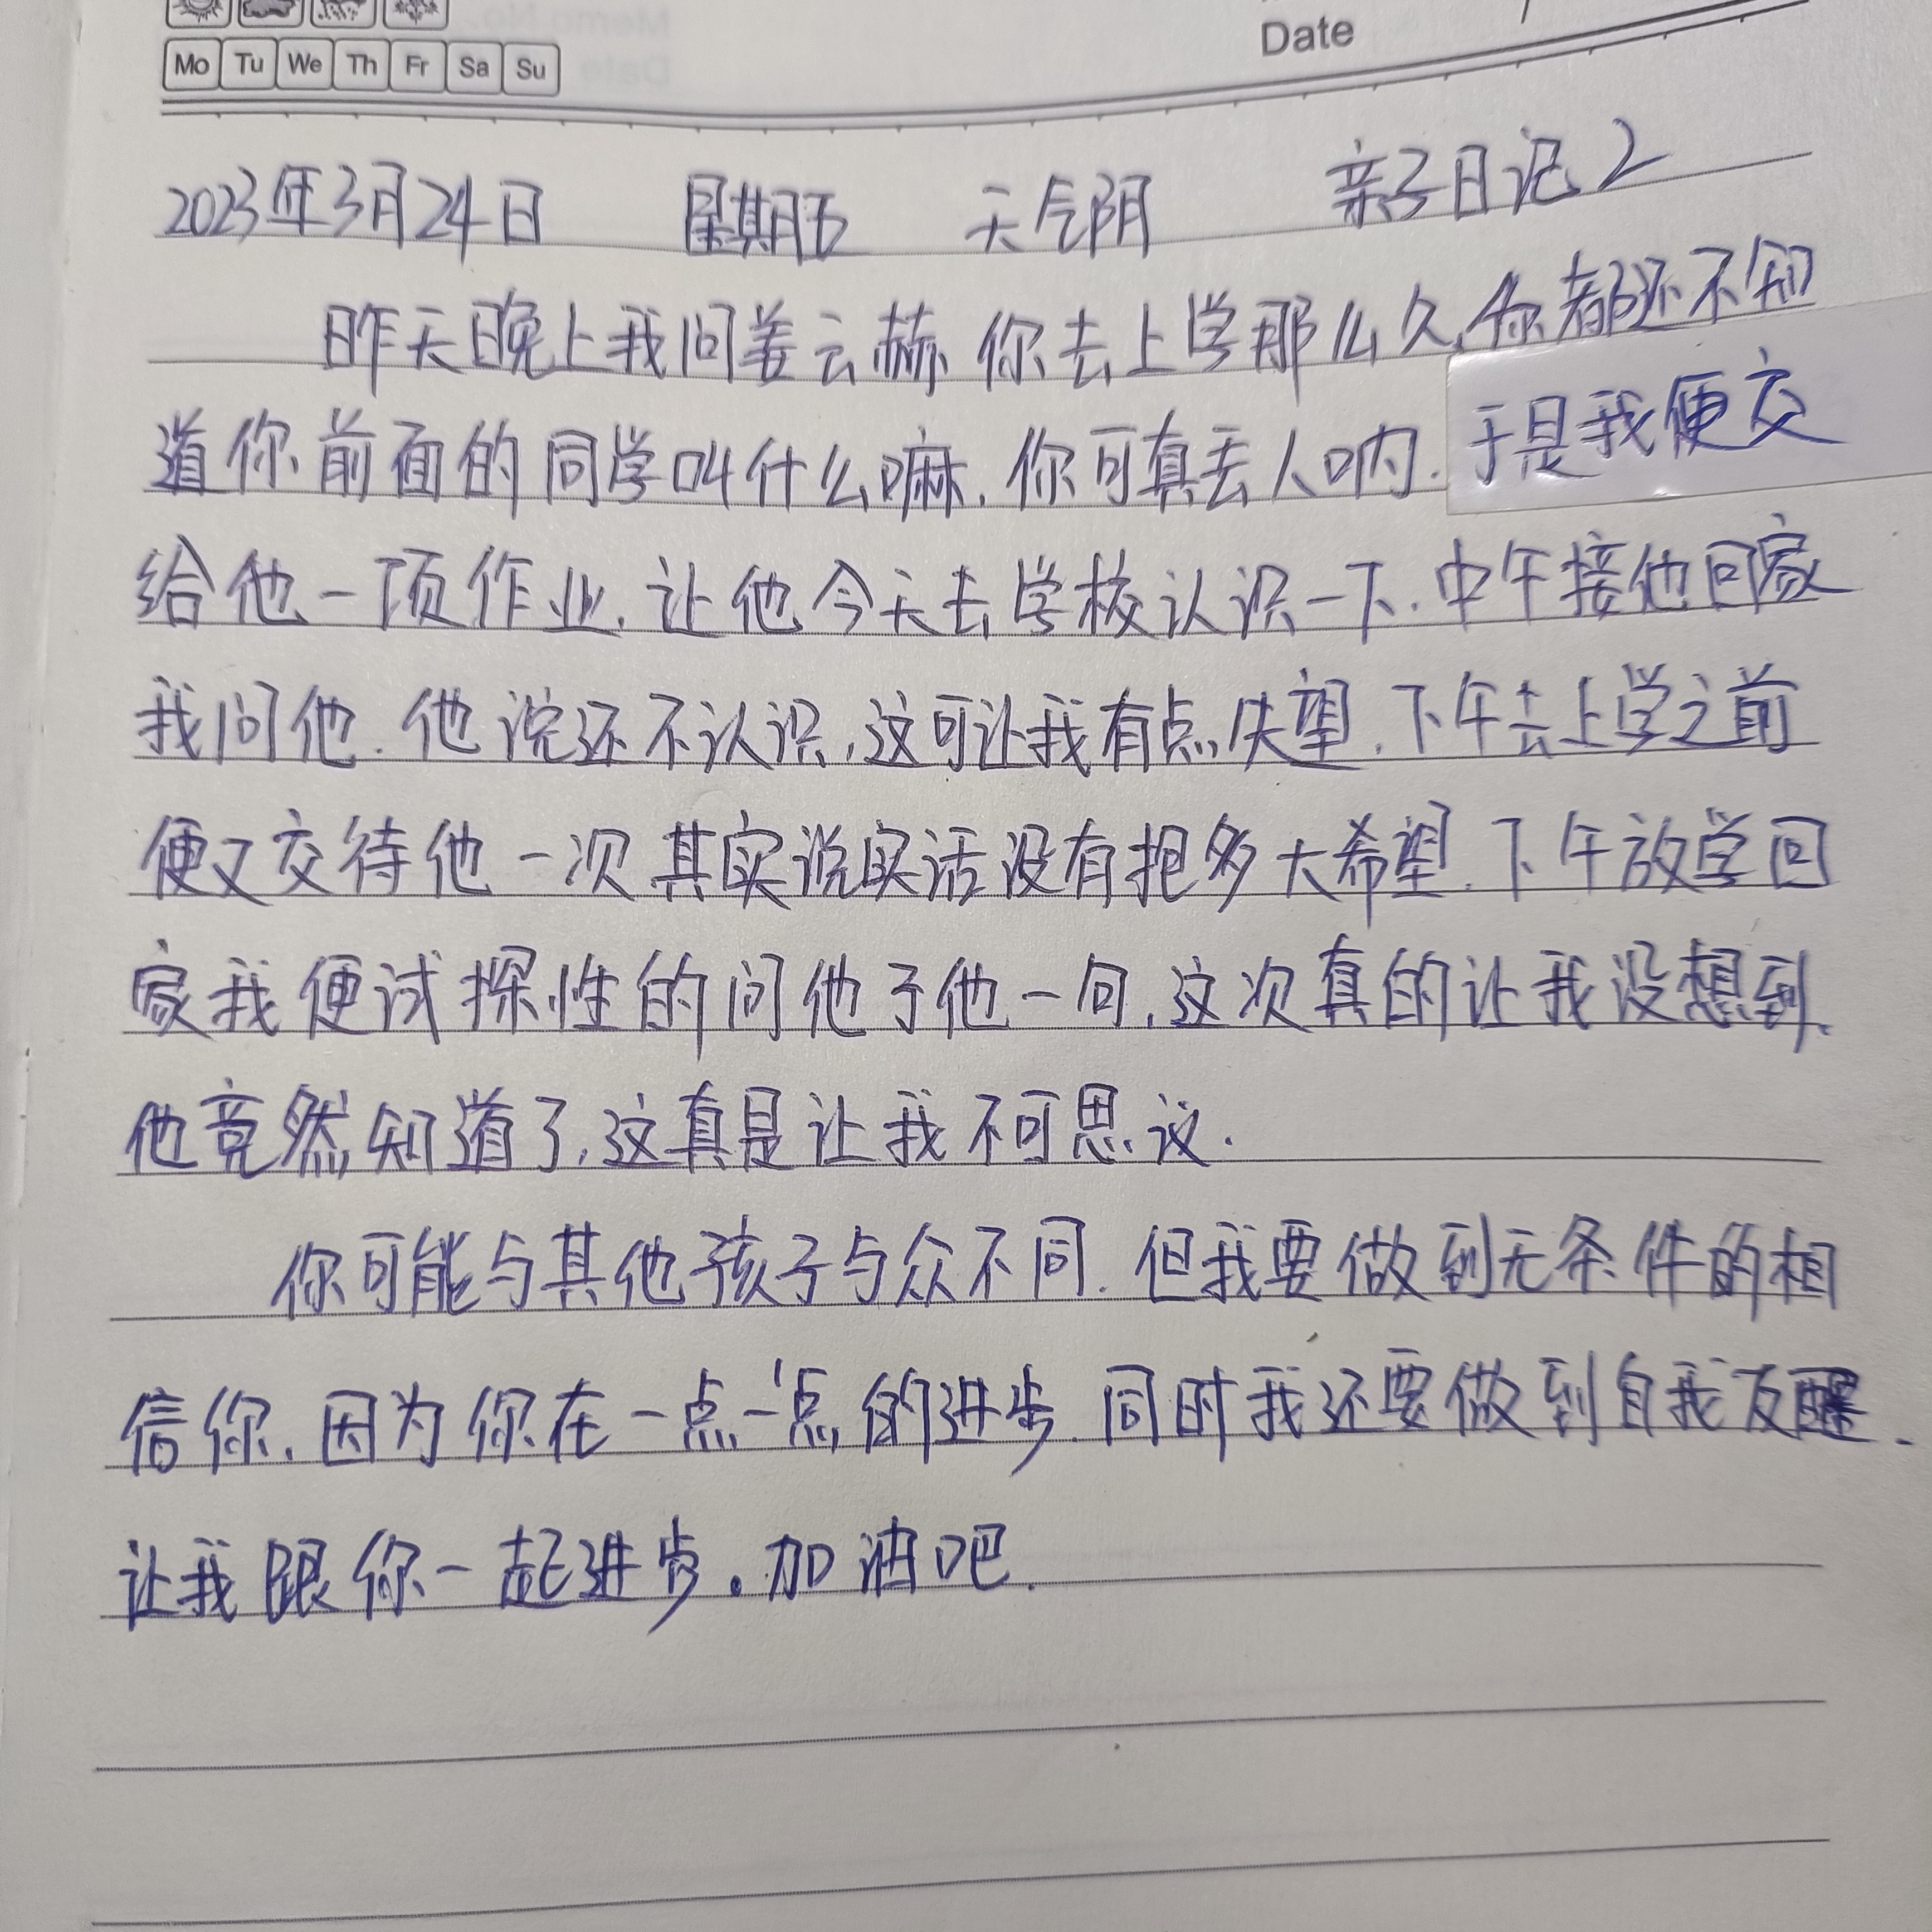 Mo Tu We Th Fr Sa Su
Date
2023年3月24日 星期五 天气阴 亲子日记2
昨天晚上我问姜云赫你去上学那么久,你都还不知
道你前面的同学叫什么嘛.你可真丢人呐.于是我便交
给他一项作业.让他今天去学校认识一下.中午接他回家
我问他.他说还不认识,这可让我有点失望.下午去上学之前
便又交待他一次其实说实话没有抱多大希望.下午放学回
家我便试探性的问他了他一句,这次真的让我没想到.
他竟然知道了,这真是让我不可思议.
你可能与其他孩子与众不同.但我要做到无条件的相
信你.因为你在一点一点的进步.同时我还要做到自我反醒.
让我跟你一起进步.加油吧.